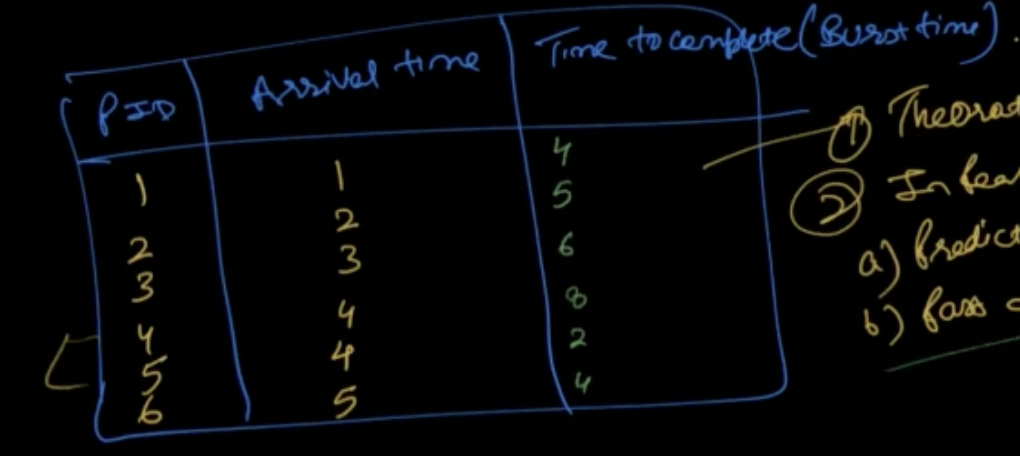 PID Arrival time Time to complete (Burst time).
1 1 4
2 2 5
3 3 6
4 4 8
5 4 2
6 5 4
① Theorat
② In Real
a) Predict
b) Pass